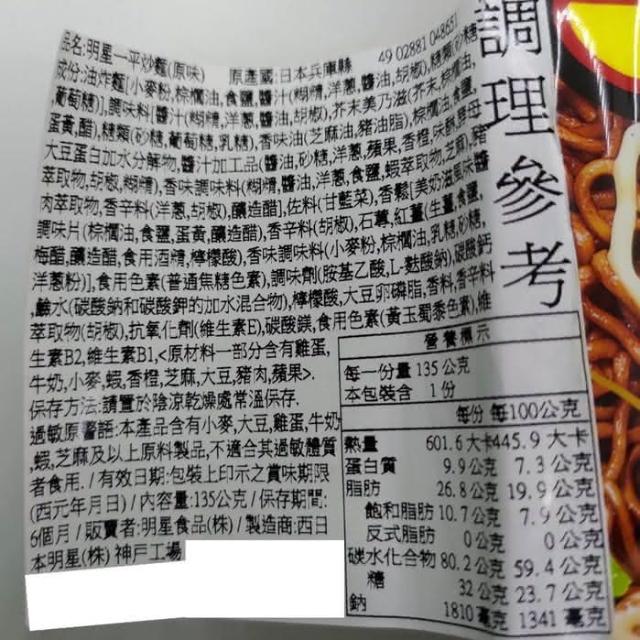 品名:明星一平炒麵(原味) 原產國:日本兵庫縣 49 02881 048651
成份:油炸麵[小麥粉,棕櫚油,食鹽,醬汁(糊精,洋蔥,醬油,胡椒),糖類(砂糖
,葡萄糖)],調味料[醬汁(糊精,洋蔥,醬油,胡椒),芥末美乃滋(芥末,棕櫚油,
蛋黃,醋),糖類(砂糖,葡萄糖,乳糖),香味油(芝麻油,豬油脂),棕櫚油,食鹽,
大豆蛋白加水分解物,醬汁加工品(醬油,砂糖,洋蔥,蘋果,香橙,味醂,酵母
萃取物,胡椒,糊精),香味調味料(糊精,醬油,洋蔥,食鹽,蝦萃取物,芝麻),豬
肉萃取物,香辛料(洋蔥,胡椒),釀造醋],佐料(甘藍菜),香鬆[美奶滋風味醬
調味片(棕櫚油,食鹽,蛋黃,釀造醋),香辛料(胡椒),石蓴,紅薑(生薑,食鹽,
梅醋,釀造醋,食用酒精,檸檬酸),香味調味料(小麥粉,棕櫚油,乳糖,砂糖,
洋蔥粉)],食用色素(普通焦糖色素),調味劑(胺基乙酸,L-麩酸鈉),碳酸鈣
,鹼水(碳酸鈉和碳酸鉀的加水混合物),檸檬酸,大豆卵磷脂,香料,香辛料
萃取物(胡椒),抗氧化劑(維生素E),碳酸鎂,食用色素(黃玉蜀黍色素),維
生素B2,維生素B1,<原材料一部分含有雞蛋,
牛奶,小麥,蝦,香橙,芝麻,大豆,豬肉,蘋果>.
保存方法:請置於陰涼乾燥處常溫保存.
過敏原警語:本產品含有小麥,大豆,雞蛋,牛奶
,蝦,芝麻及以上原料製品,不適合其過敏體質
者食用./有效日期:包裝上印示之賞味期限
(西元年月日)/內容量:135公克/保存期間:
6個月/販賣者:明星食品(株)/製造商:西日
本明星(株) 神戸工場
調理參考
營養標示
每一份量 135 公克
本包裝含 1份
每份 每100公克
熱量 601.6 大卡 445.9 大卡
蛋白質 9.9 公克 7.3 公克
脂肪 26.8 公克 19.9 公克
飽和脂肪 10.7 公克 7.9 公克
反式脂肪 0 公克 0 公克
碳水化合物 80.2 公克 59.4 公克
糖 32 公克 23.7 公克
鈉 1810 毫克 1341 毫克